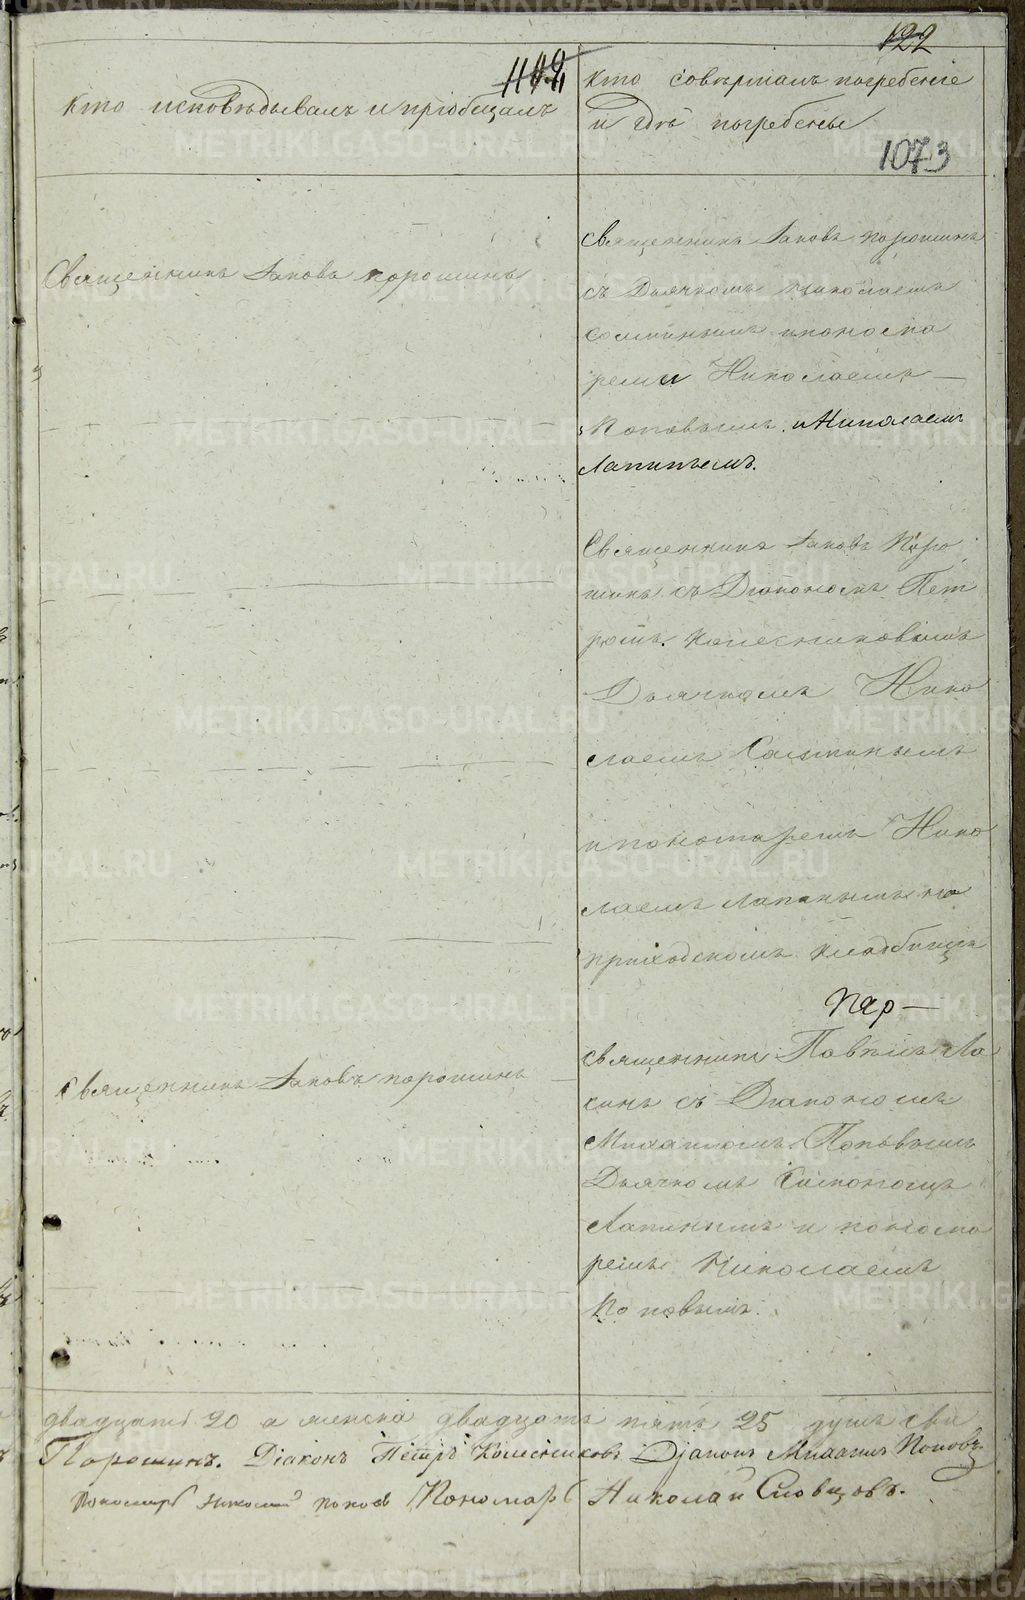 122
1142
Кто исповѣдывалъ и пріобщалъ
Кто совершалъ погребеніе
и гдѣ погребены
1073
Священникъ Іаковъ Порошинъ
Священникъ Іаковъ Порошинъ
съ Дьячкомъ Николаемъ
и поноста
ремъ Николаемъ
Поповымъ и Николаемъ
Лапинымъ.
Священникъ Іаковъ Поро
шинъ съ Діакономъ Пет
ромъ Колесниковымъ
Дьячкомъ Нико
лаемъ
и пономаремъ Нико
лаемъ Лапинымъ на
приходскомъ кладбищѣ
Пор—
Священникъ Іаковъ Порошинъ
Священникъ Павелъ Ла
синъ съ Діакономъ
Михаиломъ Поповымъ
Дьячкомъ Симономъ
Лапинымъ и понома
ремъ Николаемъ
Поповымъ.
двадцать 20 а женска двадцать пять 25 душъ Свя
Порошинъ. Діаконъ Петръ Колесниковъ Діаконъ Михаилъ Поповъ
Пономарь Николай Попов Пономарь Николай Словцовъ.
METRIKI.GASO-URAL.RU